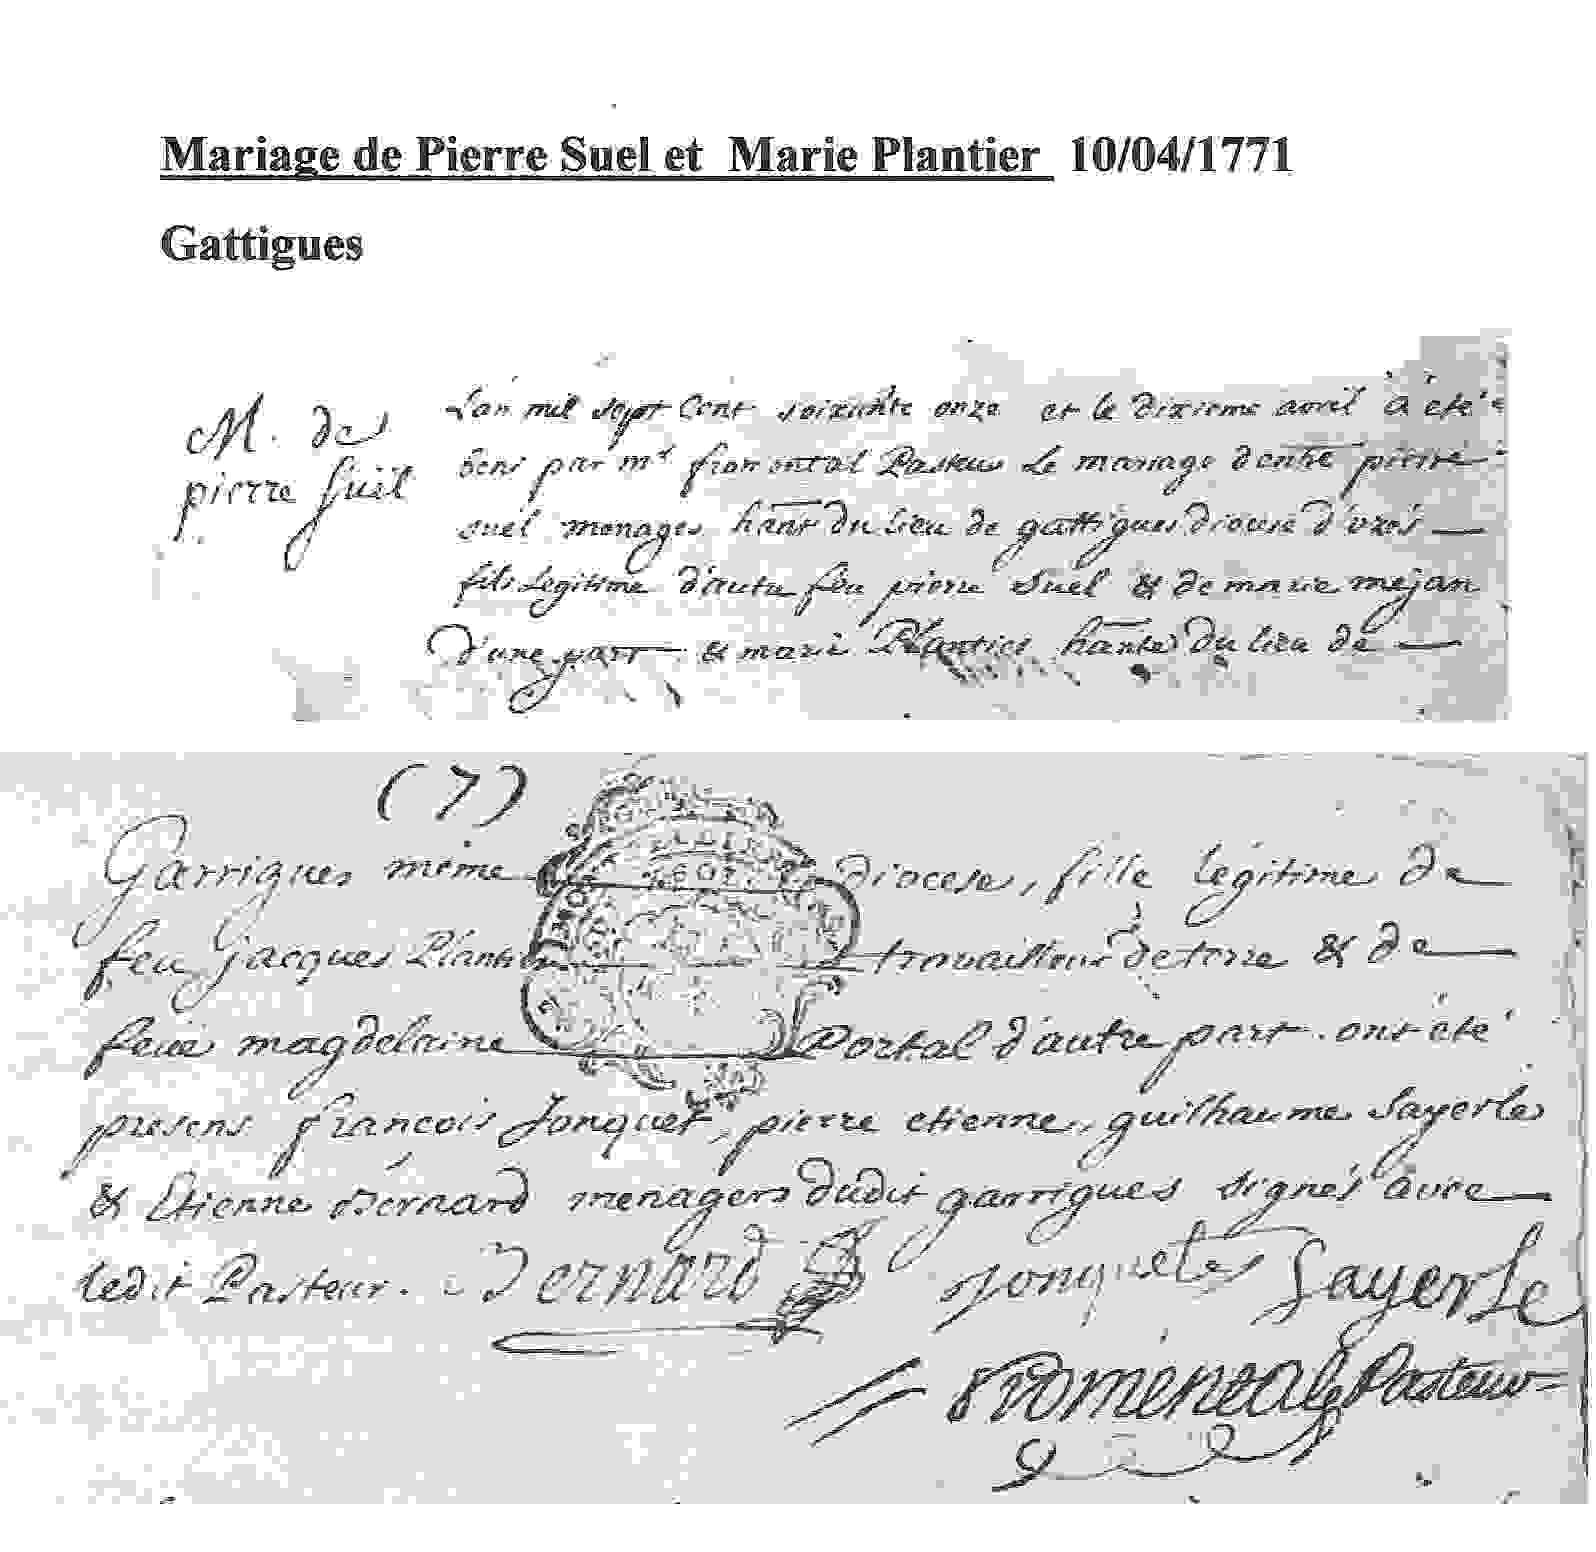 Mariage de Pierre Suel et Marie Plantier 10/04/1771
Gattigues
M. de
pierre Suel
L'an mil sept Cent soixante onze et le dixieme avril a été
beni par mr fromental Pasteur Le mariage d'entre pierre
suel menager hant du lieu de gattigues diocese d'uzés
fils Legitime d'autre feu pierre Suel & de marie mejan
d'une part & marie Plantier hante du lieu de
(7)
Garrigues même diocese, fille legitime de
feu jacques Plantier travailleur de terre & de
feue magdelaine Portal d'autre part. ont été
presens françois Jonquet, pierre etienne, guilhaume Sayerle
& Etienne Bernard menagers dudit garrigues signés avec
ledit Pasteur. Bernard Jonquet Sayerle
fromental Pasteur